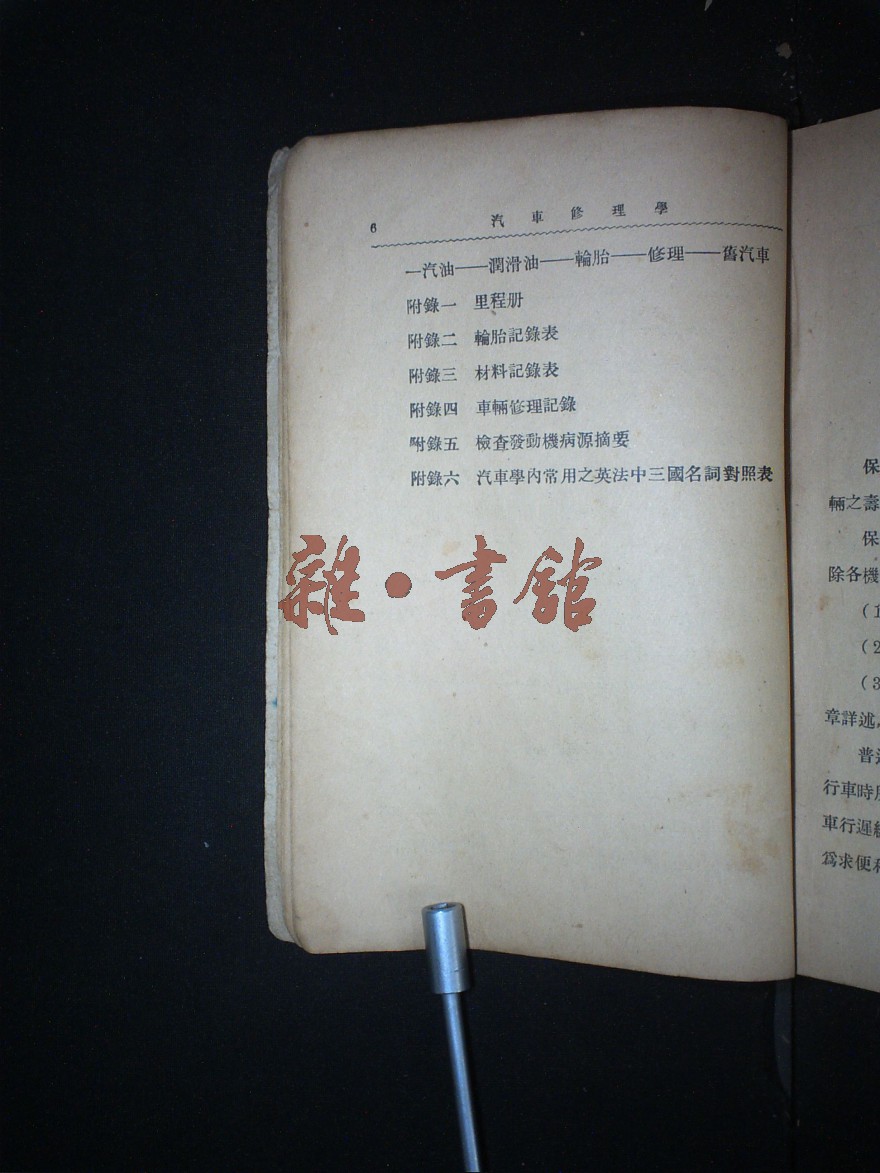 6 汽車修理學
一汽油——潤滑油——輪胎——修理——舊汽車
附錄一 里程册
附錄二 輪胎記錄表
附錄三 材料記錄表
附錄四 車輛修理記錄
附錄五 檢查發動機病源摘要
附錄六 汽車學內常用之英法中三國名詞對照表
雜·書館
保
輛之壽
保
除各機
(1
(2
(3
章詳述
普
行車時
車行遲
爲求便